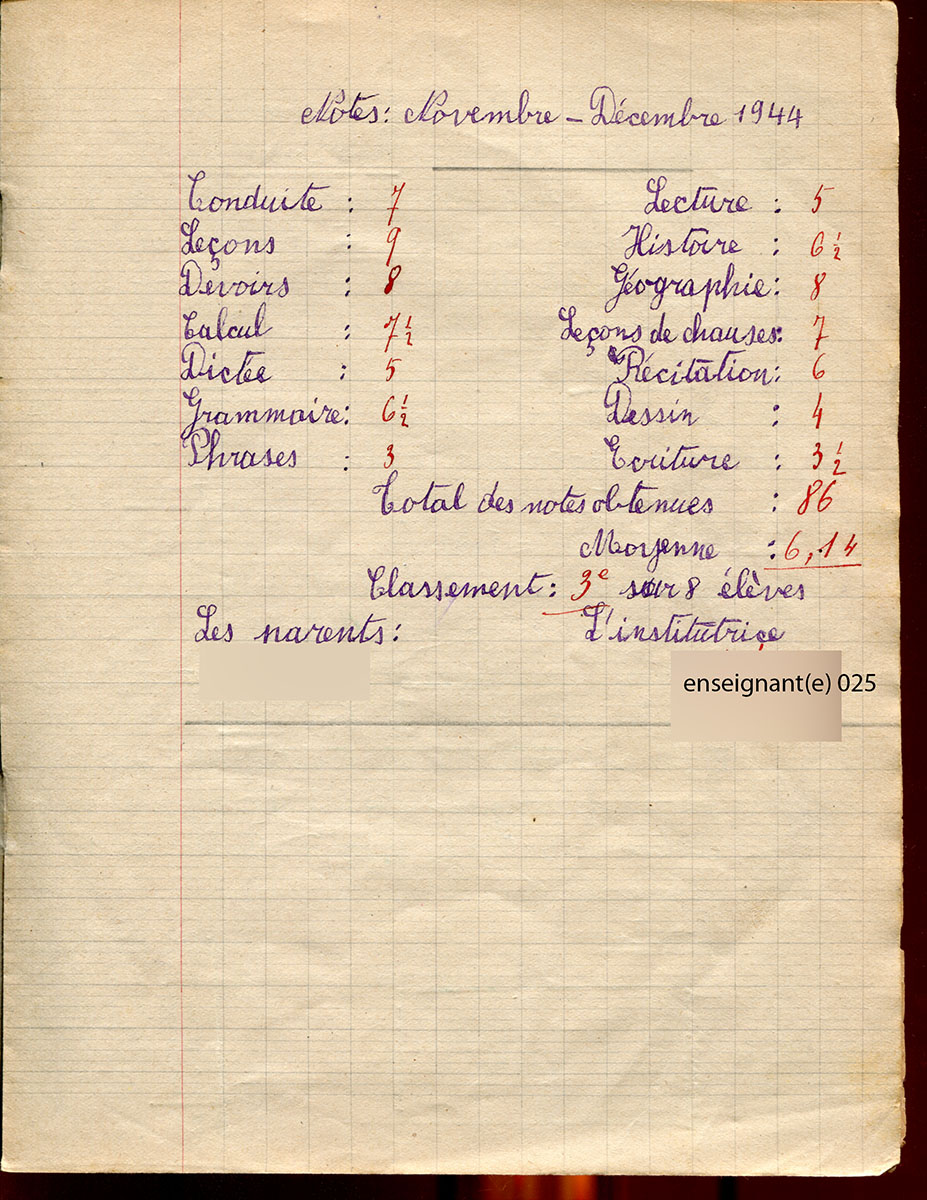 Notes: Novembre – Décembre 1944
Conduite : 7 Lecture : 5
Leçons : 9 Histoire : 6 1/2
Devoirs : 8 Géographie : 8
Calcul : 7 1/2 Leçons de chauses: 7
Dictée : 5 Récitation: 6
Grammaire: 6 1/2 Dessin : 4
Phrases : 3 Ecriture : 3 1/2
Total des notes obtenues : 86
Moyenne : 6,14
Classement: 3e sur 8 élèves
Les parents: L'institutrice
enseignant(e) 025